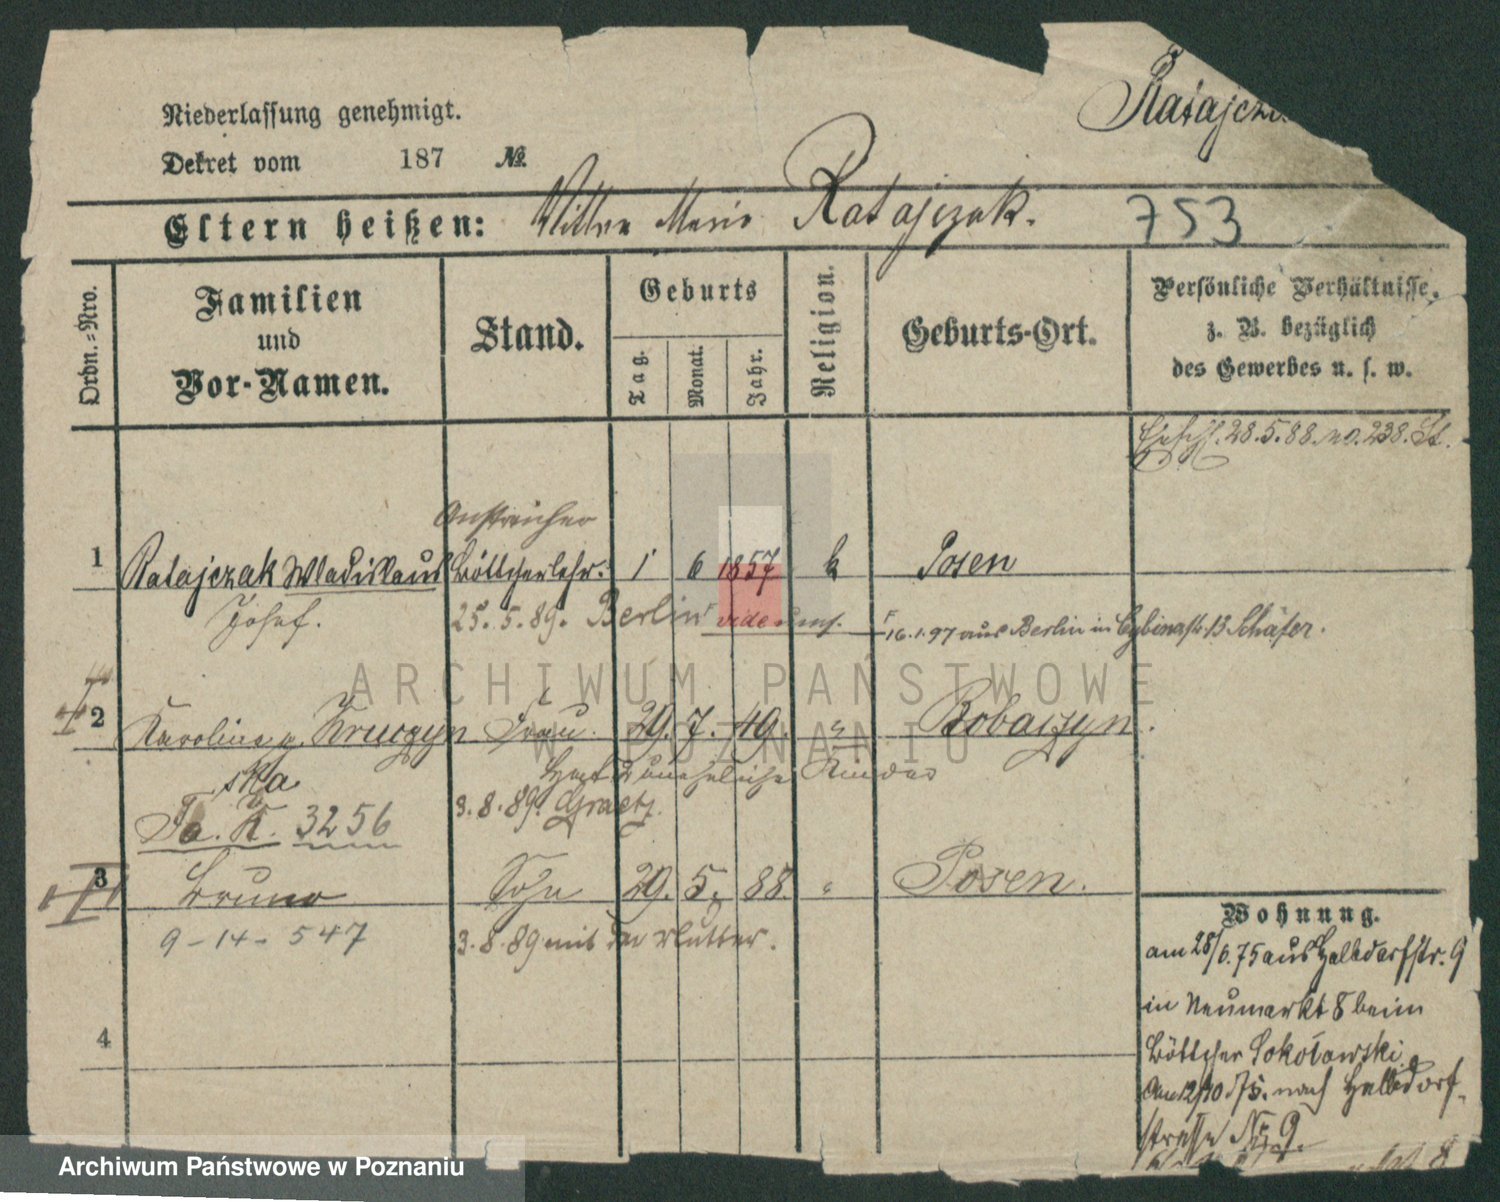 Niederlassung genehmigt.
Dekret vom 187 №.
Eltern heißen: Marie Ratajczak. 753
Ordn.=Nro.
Familien
und
Vor-Namen.
Stand.
Geburts
Tag.
Monat.
Jahr.
Religion.
Geburts-Ort.
Persönliche Verhältnisse,
z. B. bezüglich
des Gewerbes u. s. w.
28.5.88. no. 238. St.
Anstreicher
1 Ratajczak Wladislaus Böttcherlehr. 1 6 1857 k Posen
Josef. 25.5.89. Berlin vide
16.1.97 aus Berlin in Cybinastr. 13 Schäfer.
2 Karoline g. Kruczyn Frau. 29. 7. 49. " Bobaczyn.
ska Hat 2 uneheliche Kinder
3.8.89. Graetz.
Fa. K. 3256
3 Bruno Sohn 29. 5. 88. " Posen.
9-14-547 3.8.89 mit der Mutter.
4
Wohnung.
am 28/6.75 aus Halbdorfstr. 9
in Neumarkt 8 beim
Böttcher Sokołowski.
Am 12/10.75. nach Halbdorf-
strasse Nr. 9
ARCHIWUM PAŃSTWOWE
W POZNANIU
Archiwum Państwowe w Poznaniu